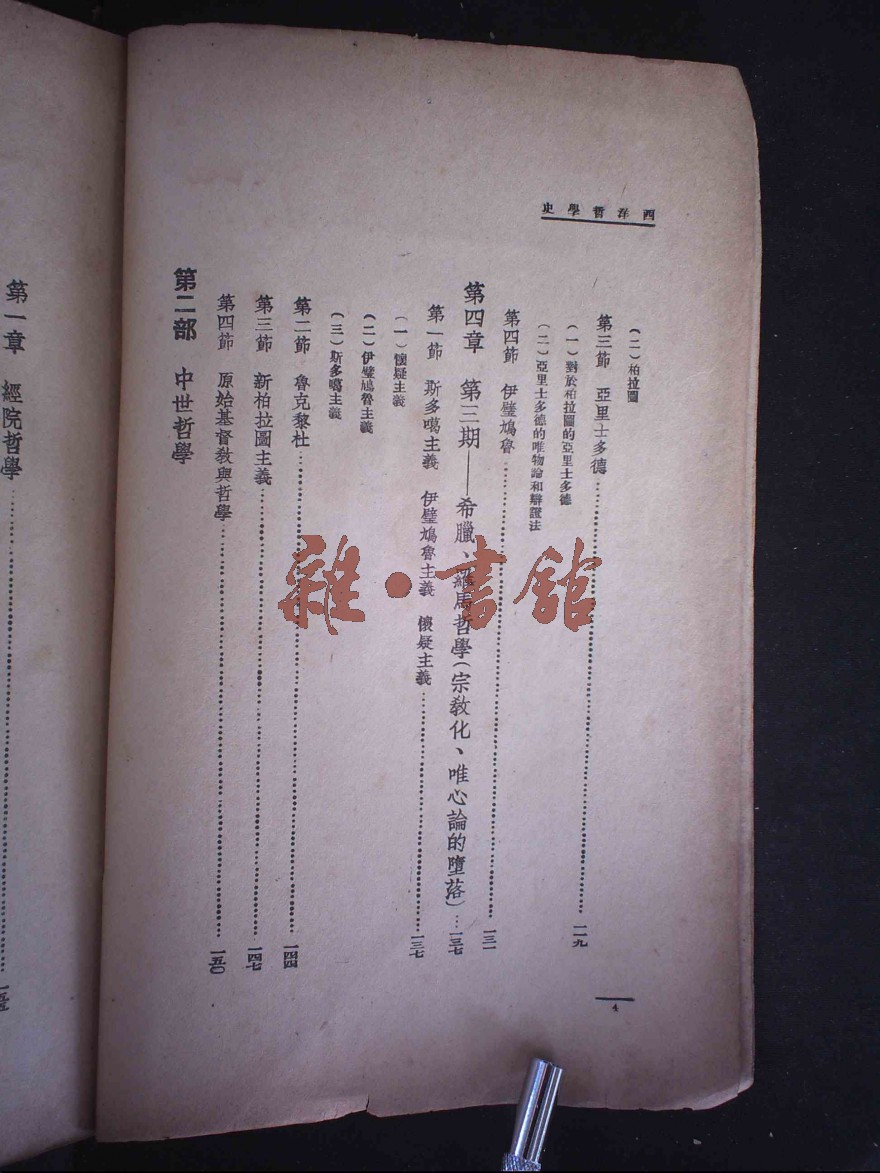 西洋哲學史
(二)柏拉圖
第三節 亞里士多德……一一九
(一)對於柏拉圖的亞里士多德
(二)亞里士多德的唯物論和辯證法
第四節 伊壁鳩魯……一三一
第四章 第三期——希臘、羅馬哲學(宗教化、唯心論的墮落)…一三七
第一節 斯多噶主義 伊壁鳩魯主義 懷疑主義……一三七
(一)懷疑主義
(二)伊壁鳩魯主義
(三)斯多噶主義
第二節 魯克黎杜……一四四
第三節 新柏拉圖主義……一四七
第四節 原始基督教與哲學……一五〇
第二部 中世哲學
4
第一章 經院哲學……
雜·書館